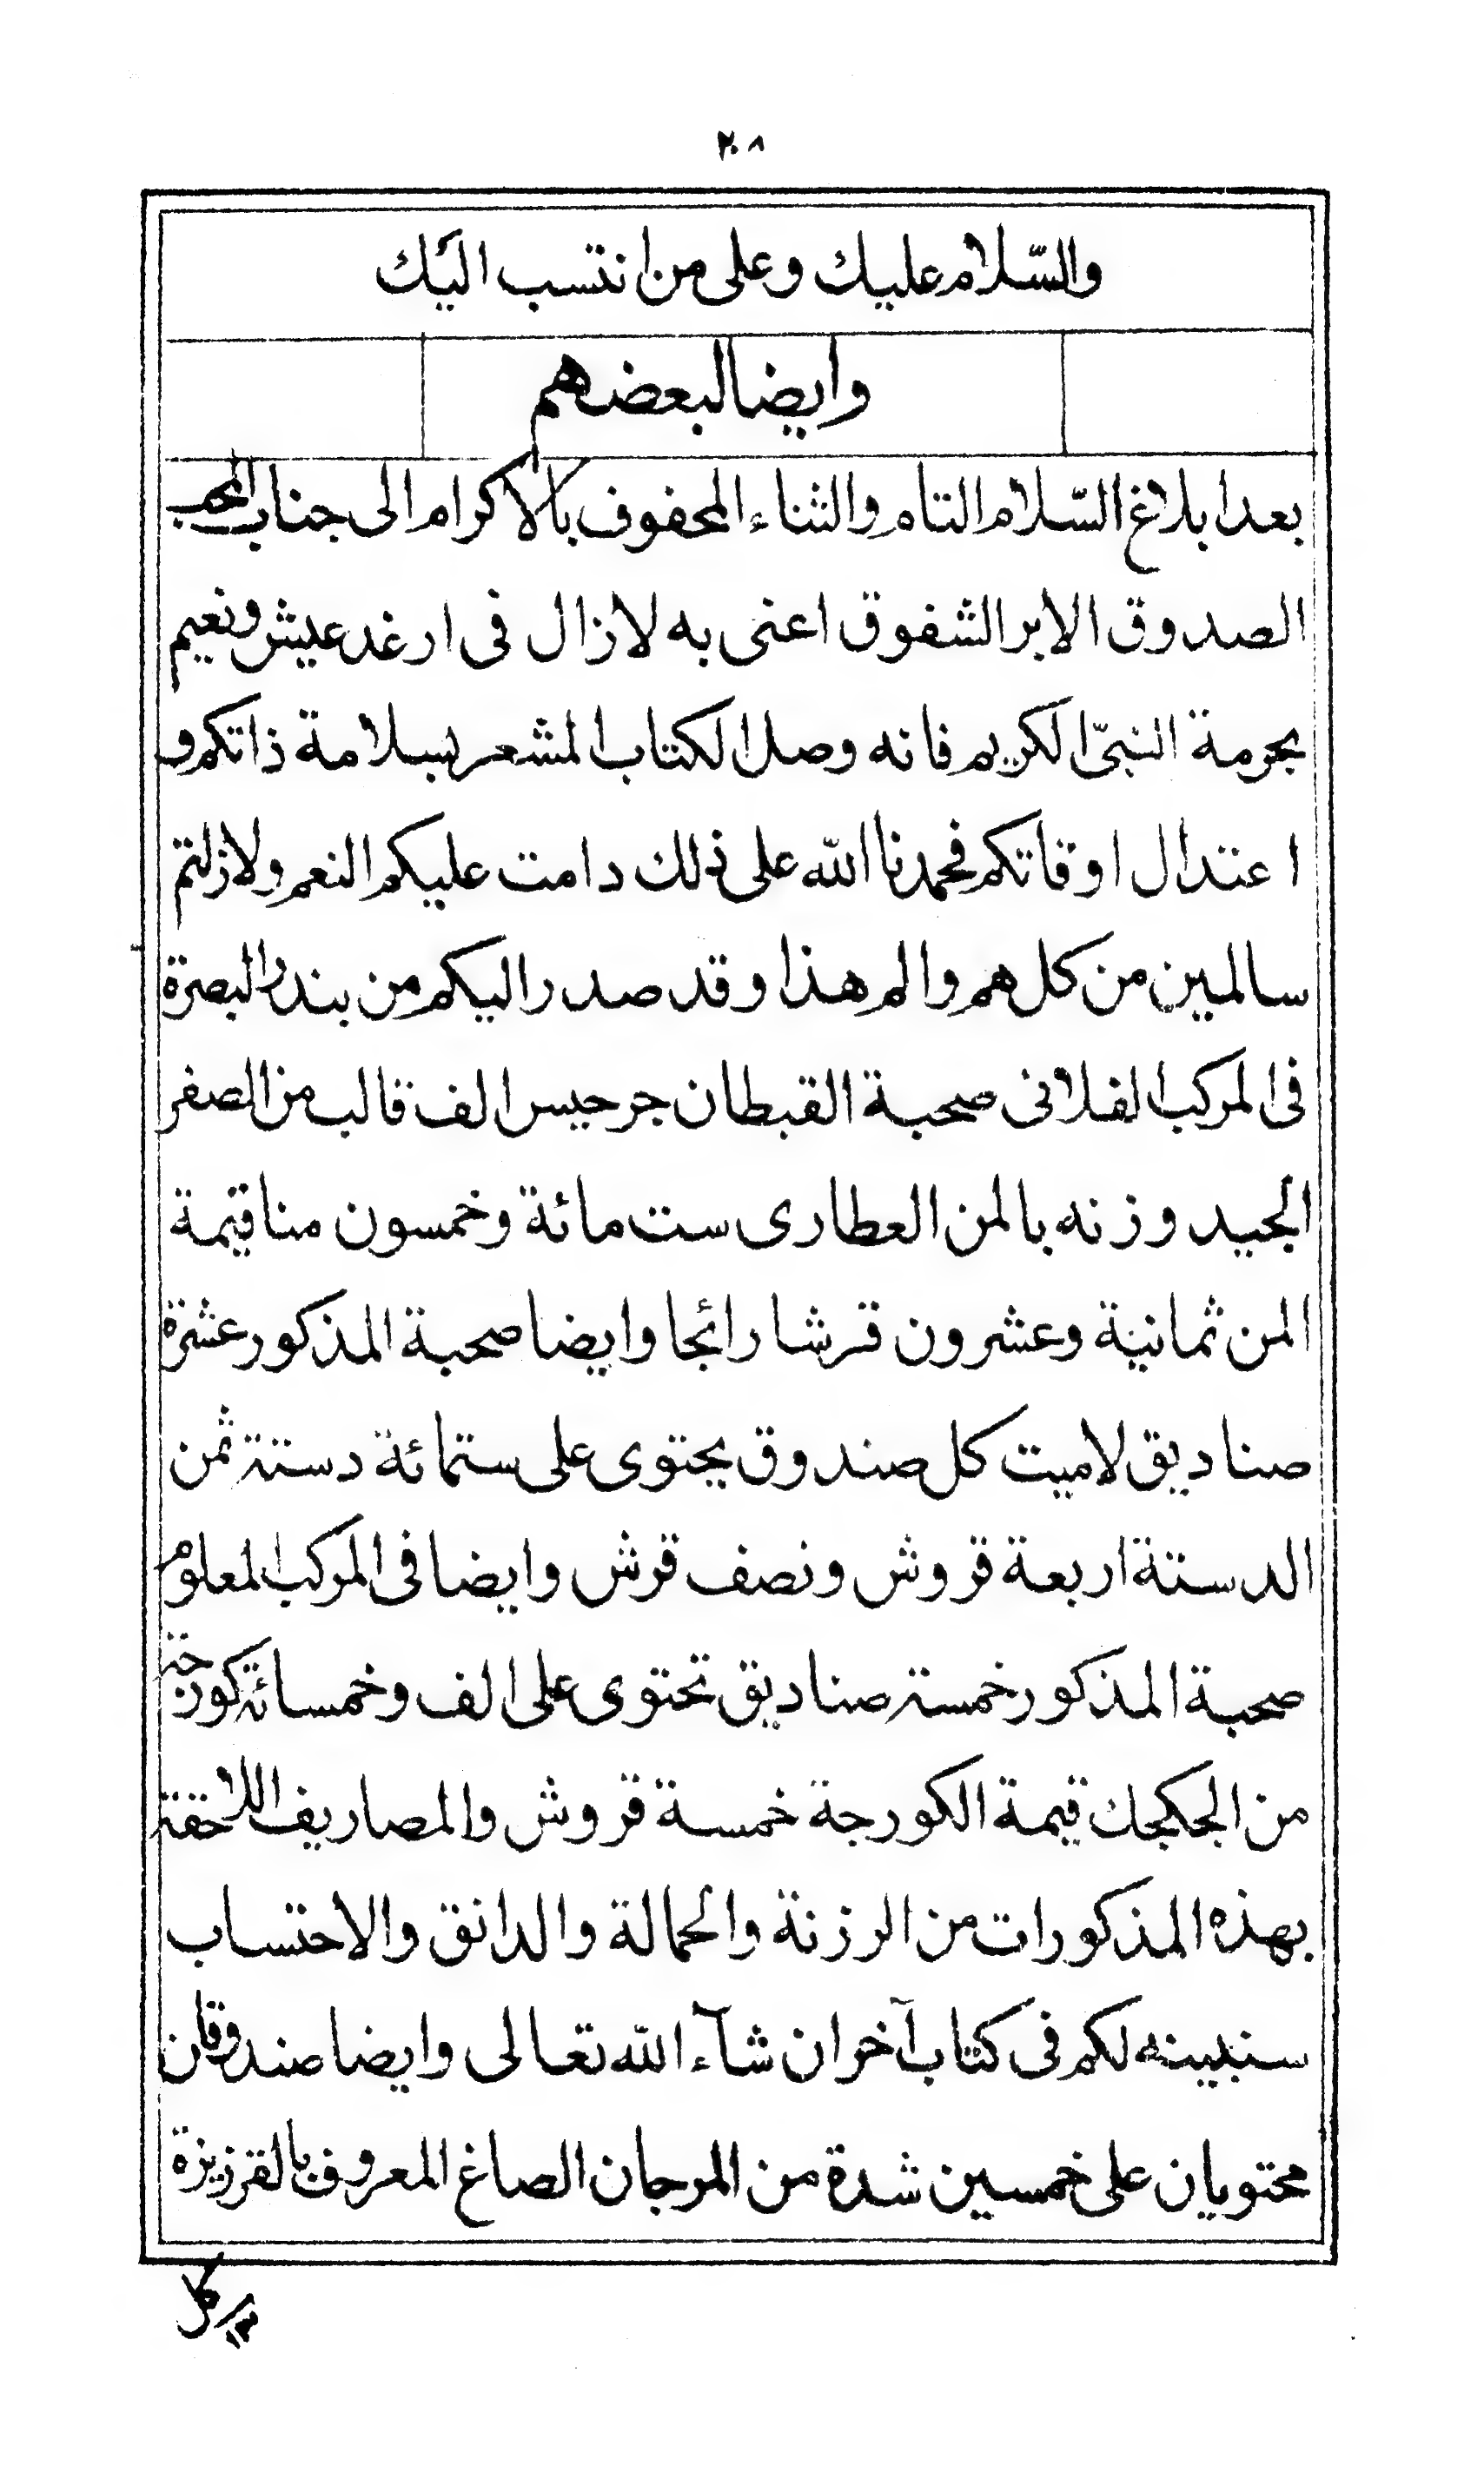 ٢٠٨
والسّلام عليك وعلى من انتسب اليك
وايضا لبعضهم
بعد ابلاغ السّلام التام والثناء المحفوف بالاكرام الى جناب المحب
الصدوق الابر الشفوق اعنى به لازال فى ارغد عيش ونعيم
بحرمة النبىّ الكريم فانه وصل الكتاب المشعر بسلامة ذاتكم و
اعتدال اوقاتكم فحمدنا اللّه على ذلك دامت عليكم النعم ولازلتم
سالمين من كل هم والم هذا وقد صدر اليكم من بندر البصرة
فى المركب الفلانى صحبة القبطان جرجيس الف قالب من الصفر
الجيد وزنه بالمن العطارى ست مائة وخمسون منا قيمة
المن ثمانية وعشرون قرشا رائجا وايضا صحبة المذكور عشرة
صناديق لاميت كل صندوق يحتوى على ستمائة دستة ثمن
الدستة اربعة قروش ونصف قرش وايضا فى المركب المعلوم
صحبة المذكور خمسة صناديق تحتوى على الف وخمسمائة كورجة
من الجكجك قيمة الكورجة خمسة قروش والمصاريف اللاحقة
بهذه المذكورات من الرزنة والحمالة والدانق والاحتساب
سنبينه لكم فى كتاب آخر ان شآء اللّه تعالى وايضا صندوقان
محتويان على خمسين شدة من المرجان الصاغ المعروف بالقرزيزة
كل